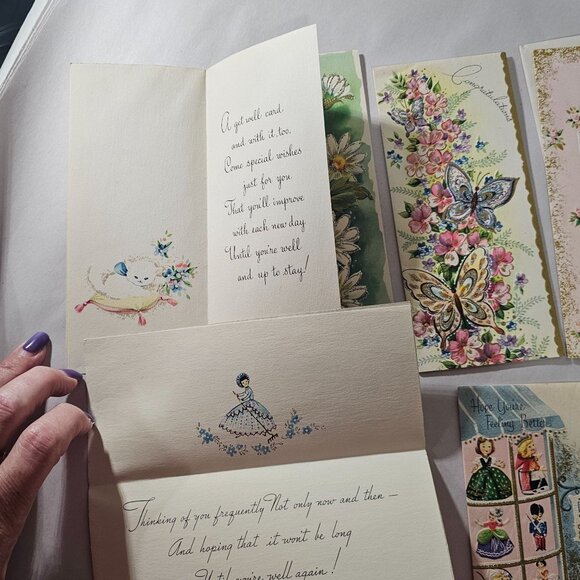 A get well card,
and with it, too,
Come special wishes
just for you
That you'll improve
with each new day
Until you're well
and up to stay!
Congratulations
Hope You're
Feeling Better
Thinking of you frequently Not only now and then —
And hoping that it won't be long
Until you're well again!